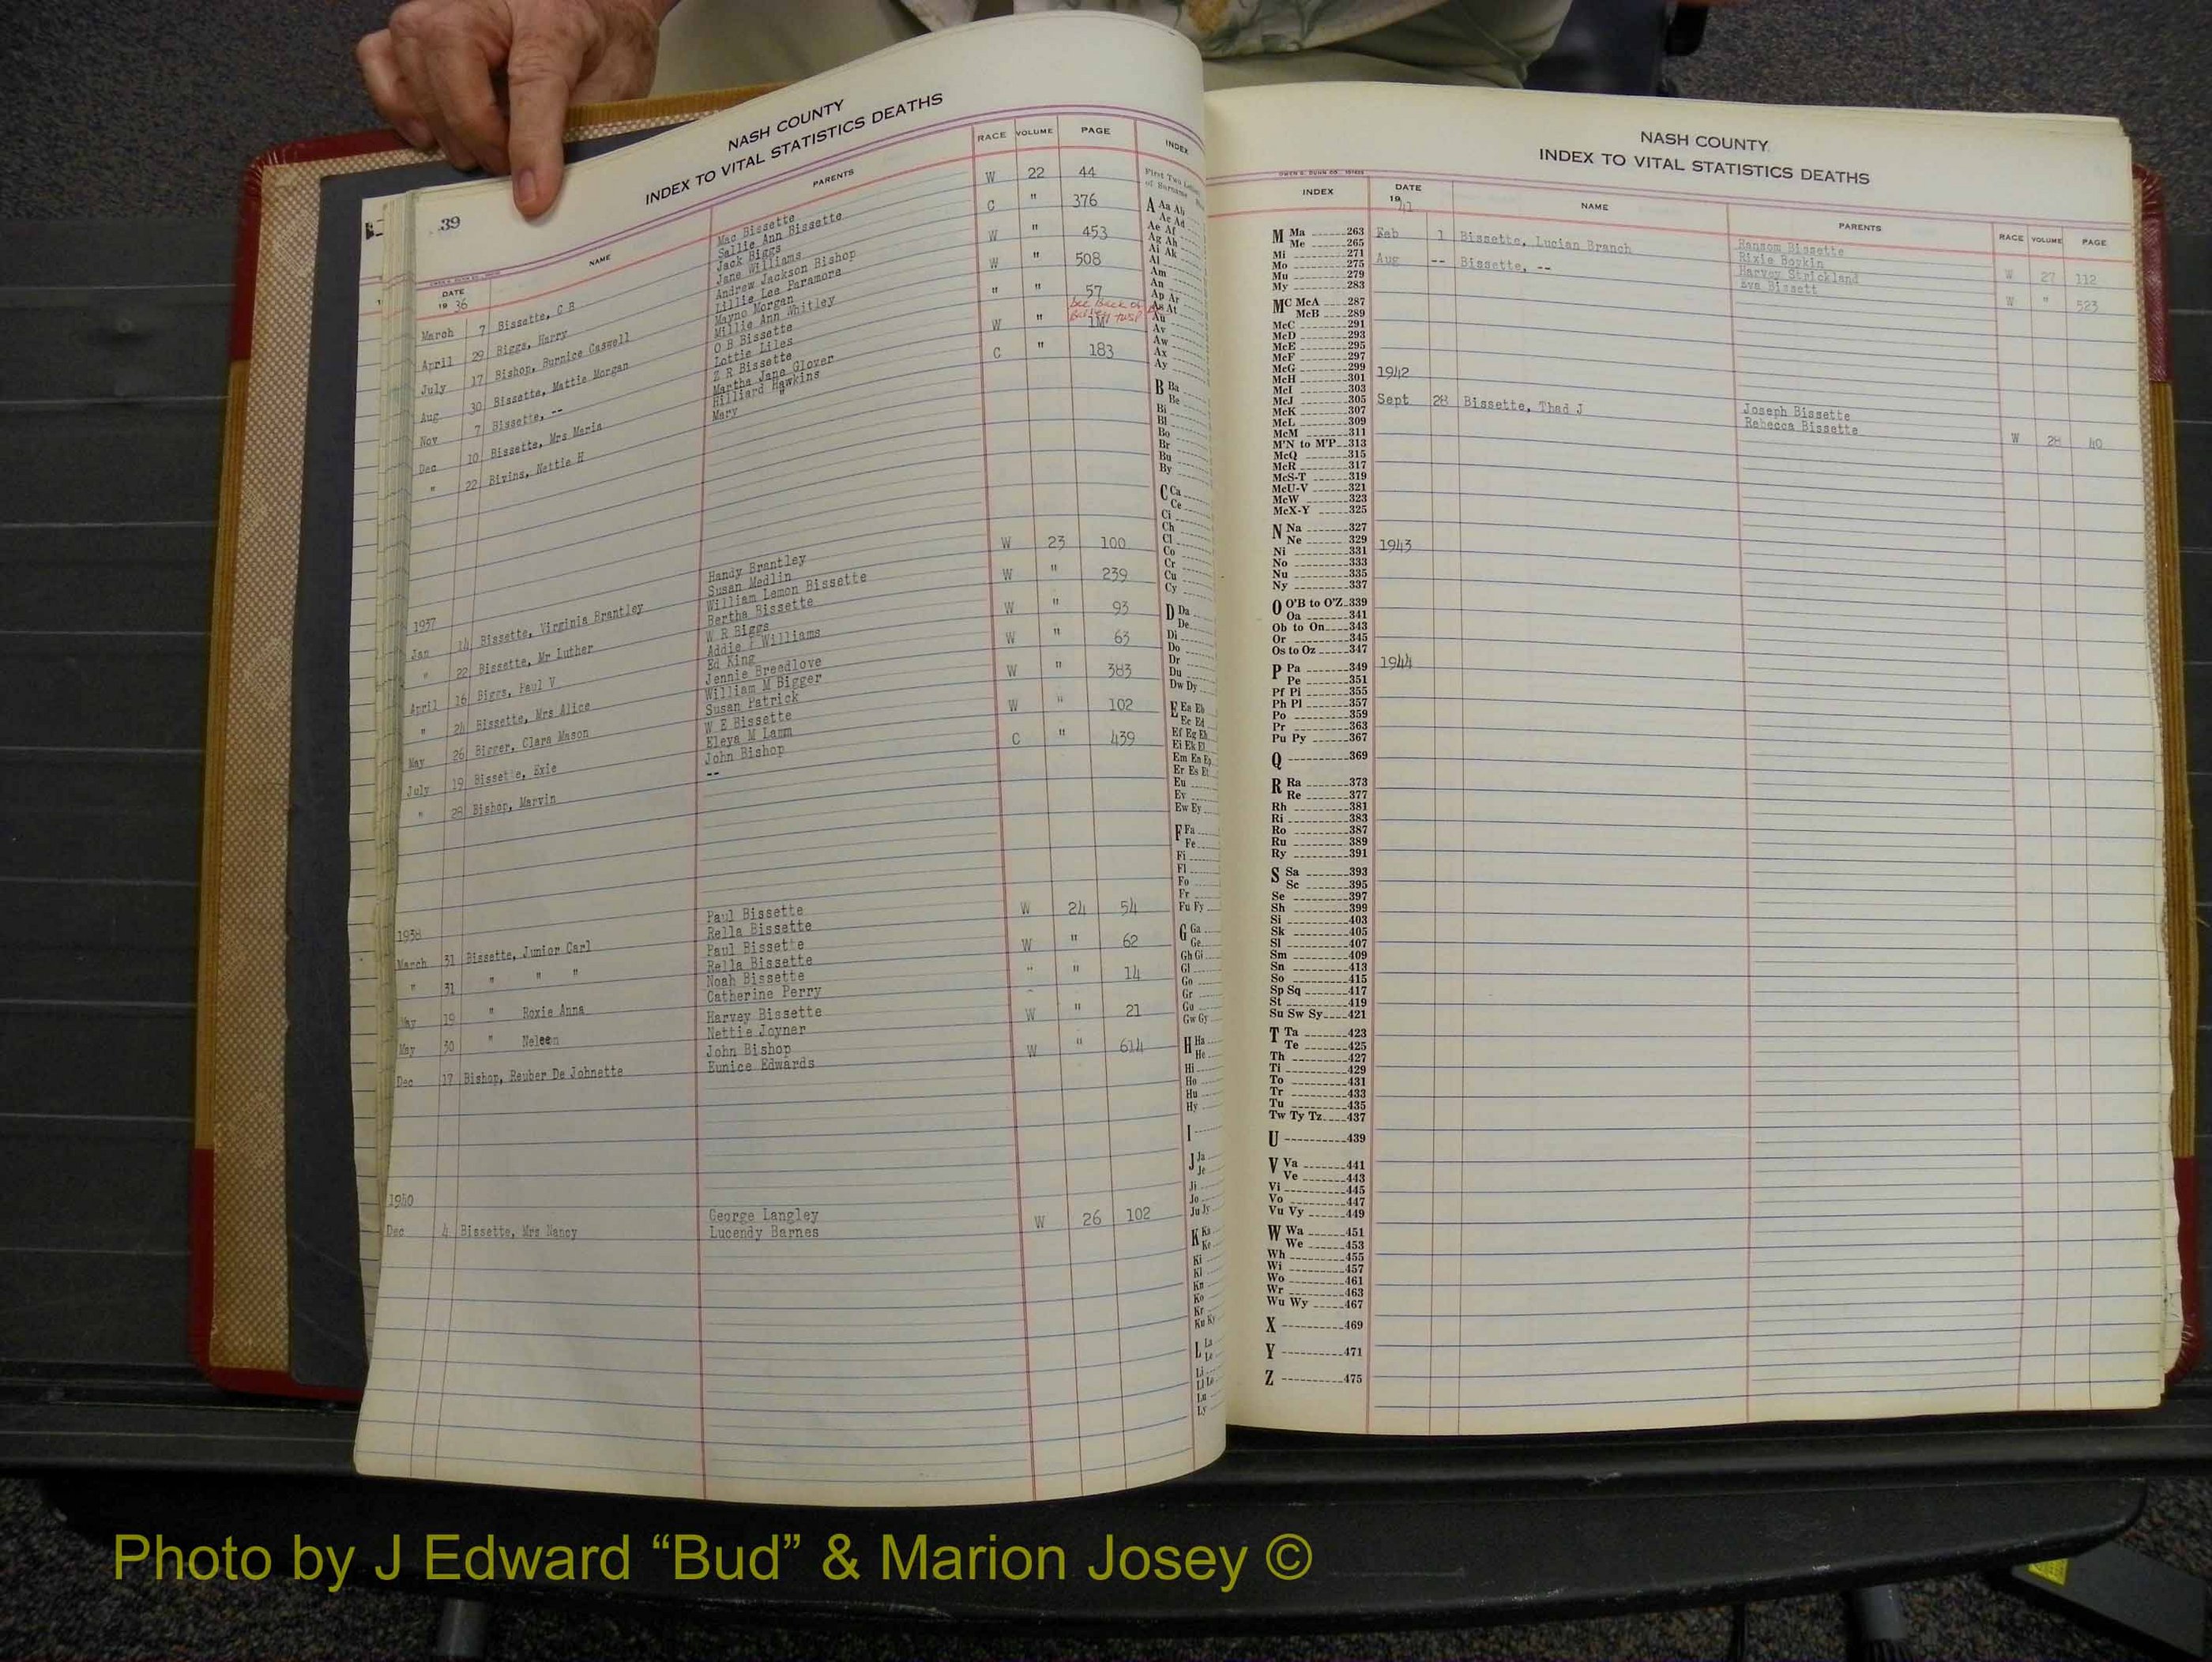 39
NASH COUNTY
INDEX TO VITAL STATISTICS DEATHS
DATE NAME PARENTS RACE VOLUME PAGE INDEX
19 36
March 7 Bissette, C B Mac Bissette W 22 44
Sallie Ann Bissette
April 29 Biggs, Harry Jack Biggs C " 376
Jane Williams
July 17 Bishop, Burnice Caswell Andrew Jackson Bishop W " 453
Lillie Lee Paramore
Aug 30 Bissette, Mattie Morgan Mayno Morgan W " 508
Millie Ann Whitley
Nov 7 Bissette, -- O B Bissette " " 57
Lottie Liles
Dec 10 Bissette, Mrs Maria Z R Bissette W "
Martha Jane Glover
" 22 Bivins, Nettie H Hilliard Hawkins C " 183
Mary "
1937
Jan 14 Bissette, Virginia Brantley Handy Brantley W 23 100
Susan Medlin
" 22 Bissette, Mr Luther William Lemon Bissette W " 239
Bertha Bissette
April 16 Biggs, Paul V W R Biggs W " 93
Addie F Williams
" 24 Bissette, Mrs Alice Ed King W " 63
Jennie Breedlove
May 26 Bigger, Clara Mason William M Bigger W " 383
Susan Patrick
July 19 Bissette, Exie W E Bissette W " 102
Eleya M Lamm
" 28 Bishop, Marvin John Bishop C " 439
--
1938
March 31 Bissette, Junior Carl Paul Bissette W 24 54
Rella Bissette
" 31 " " " Paul Bissette W " 62
Rella Bissette
May 19 " Roxie Anna Noah Bissette " " 14
Catherine Perry
May 30 " Neleen Harvey Bissette W " 21
Nettie Joyner
Dec 17 Bishop, Reuber De Johnette John Bishop W " 614
Eunice Edwards
1940
Dec 4 Bissette, Mrs Nancy George Langley W 26 102
Lucendy Barnes
First Two Letters
of Surname
A Aa Ab
Ac Ad
Ae Af
Ag Ah
Ai Ak
Al
Am
An
Ap Ar
As At
Au
Av
Aw
Ax
Ay
B Ba
Be
Bi
Bl
Bo
Br
Bu
By
C Ca
Ce
Ci
Ch
Cl
Co
Cr
Cu
Cy
D Da
De
Di
Do
Dr
Du
Dw Dy
E Ea Eb
Ec Ed
Ef Eg Eh
Ei Ek El
Em En Ep
Er Es Et
Eu
Ev
Ew Ey
F Fa
Fe
Fi
Fl
Fo
Fr
Fu Fy
G Ga
Ge
Gh Gi
Gl
Go
Gr
Gu
Gw Gy
H Ha
He
Hi
Ho
Hu
Hy
I
J Ja
Je
Ji
Jo
Ju Jy
K Ka
Ke
Ki
Kl
Kn
Ko
Kr
Ku Ky
L La
Le
Li
Ll Lo
Lu
Ly
NASH COUNTY
INDEX TO VITAL STATISTICS DEATHS
INDEX DATE NAME PARENTS RACE VOLUME PAGE
19 41
Feb 1 Bissette, Lucian Branch Ransom Bissette W 27 112
Rixie Boykin
Aug -- Bissette, -- Harvey Strickland W " 523
Eva Bissett
1942
Sept 28 Bissette, Thad J Joseph Bissette W 28 40
Rebecca Bissette
1943
1944
M Ma 263
Me 265
Mi 271
Mo 275
Mu 279
My 283
MC McA 287
McB 289
McC 291
McD 293
McE 295
McF 297
McG 299
McH 301
McI 303
McJ 305
McK 307
McL 309
McM 311
M'N to M'P 313
McQ 315
McR 317
McS-T 319
McU-V 321
McW 323
McX-Y 325
N Na 327
Ne 329
Ni 331
No 333
Nu 335
Ny 337
O O'B to O'Z 339
Oa 341
Ob to On 343
Or 345
Os to Oz 347
P Pa 349
Pe 351
Pf Pi 355
Ph Pl 357
Po 359
Pr 363
Pu Py 367
Q 369
R Ra 373
Re 377
Rh 381
Ri 383
Ro 387
Ru 389
Ry 391
S Sa 393
Sc 395
Se 397
Sh 399
Si 403
Sk 405
Sl 407
Sm 409
Sn 413
So 415
Sp Sq 417
St 419
Su Sw Sy 421
T Ta 423
Te 425
Th 427
Ti 429
To 431
Tr 433
Tu 435
Tw Ty Tz 437
U 439
V Va 441
Ve 443
Vi 445
Vo 447
Vu Vy 449
W Wa 451
We 453
Wh 455
Wi 457
Wo 461
Wr 463
Wu Wy 467
X 469
Y 471
Z 475
Photo by J Edward “Bud” & Marion Josey ©